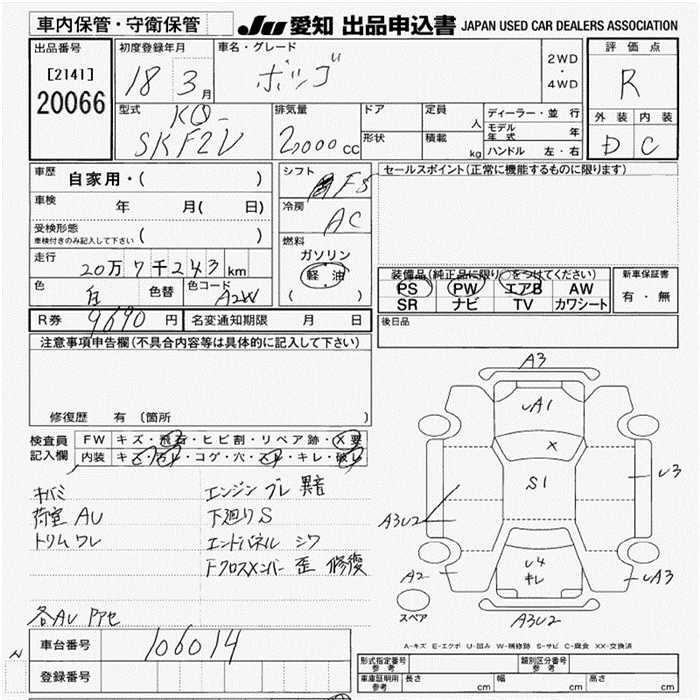 車内保管・守衛保管
JU 愛知 出品申込書 JAPAN USED CAR DEALERS ASSOCIATION
出品番号
[2141]
20066
初度登録年月
18 3 月
車名・グレード
ボンゴ
2WD
・
4WD
評価点
R
外装 内装
D C
型式
KQ-
SKF2V
排気量
2,000 cc
ドア
形状
定員
人
積載
kg
ディーラー・並行
モデル年 年
ハンドル 左・右
車歴
自家用・( )
車検
年 月( 日)
受検形態
車検付きのみ記入して下さい ( )
走行
20万7千243 km
色
白
色替
色コード
A2W
シフト
F5
冷房
AC
燃料
ガソリン
軽油
( )
セールスポイント(正常に機能するものに限ります)
装備品(純正品に限り○をつけてください)
PS PW エアB AW
SR ナビ TV カワシート
新車保証書
有・無
R券 9690 円
名変通知期限 月 日
後日品
注意事項申告欄(不具合内容等は具体的に記入して下さい)
修復歴 有 (箇所 )
検査員
記入欄
FW キズ・飛石・ヒビ割・リペア跡・X要
内装 キズ・汚レ・コゲ・穴・スレ・キレ・破レ
キバミ
荷室 AU
トリム ワレ
エンジン ブレ 異音
下廻り S
エンドパネル シワ
Fクロスメンバー 歪 修復
各AU Pアセ
A3
UA1
X
S1
U3
A3U2
U4
キレ
A2
UA3
A3U2
スペア
A-キズ E-エクボ U-凹み W-補修跡 S-サビ C-腐食 XX-交換済
車台番号
106014
登録番号
形式指定番号
参考
類別区分番号
参考
車庫証明用
参考
長さ cm
幅 cm
高さ cm